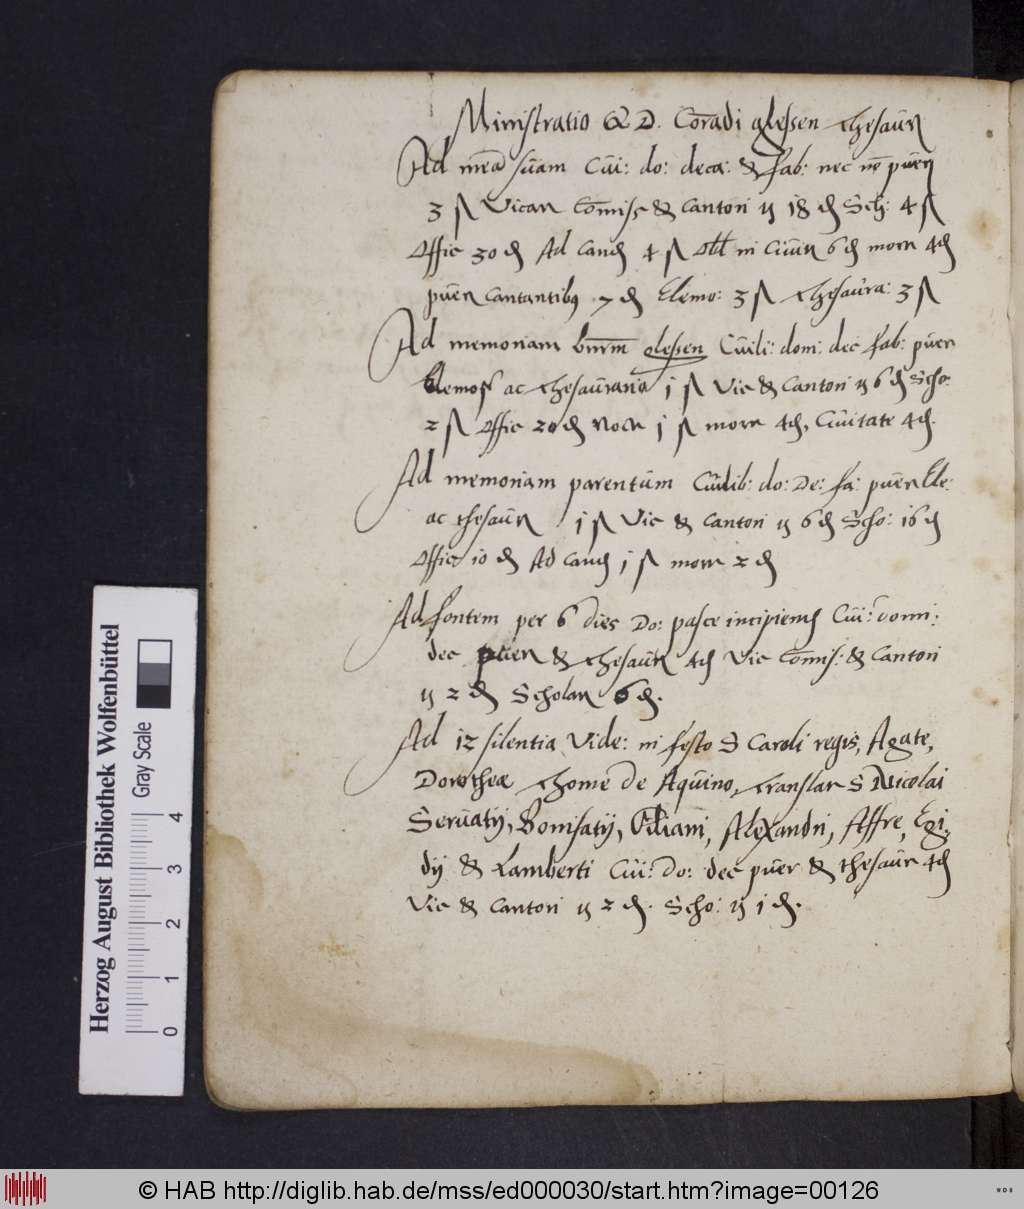 Ministratio D. Conradi glessen thesaur
Ad mēā suam Cui: do: deca: & fab: nec nō puerī
3 ß Vicar Comiss & Cantori ij 18 ₰ Sch: 4 ß
Offic 30 ₰ Ad Cand 4 ß in Civit 6 ₰ 4 ₰
puer Cantantibus 7 ₰ Elemo: 3 ß thesaura: 3 ß
Ad memoriam glessen Cuili: dom: dec fab: puer
Elemos ac thesaurario j ß Vic & Cantori ij 6 ₰ Scho:
2 ß Offic 20 ₰ j ß 4 ₰, Civitate 4 ₰.
Ad memoriam parentum Cuilib: do: De: fa: puer Ele:
ac thesaur j ß Vic & Cantori ij 6 ₰ Scho: 16 ₰
Offic 10 ₰ Ad Cand j ß 2 ₰
Ad fontem per 6 dies Do: pasce incipiend Cui: domi:
dec puer & thesaur 4 ₰ Vic Comis: & Cantori
ij 2 ₰ Scholar 6 ₰.
Ad 12 silentia Vide: in festo S Caroli regis, Agate,
Dorotheæ Thome de Aquino, Translat S Nicolai
Seruatij, Bonifatij, Kiliani, Alexandri, Affre, Egi,
dij & Lamberti Cui: Do: dec puer & thesaur 4 ₰
Vic & Cantori ij 2 ₰. Scho: ij 1 ₰.
Herzog August Bibliothek Wolfenbüttel
Gray Scale
0 1 2 3 4
© HAB http://diglib.hab.de/mss/ed000030/start.htm?image=00126